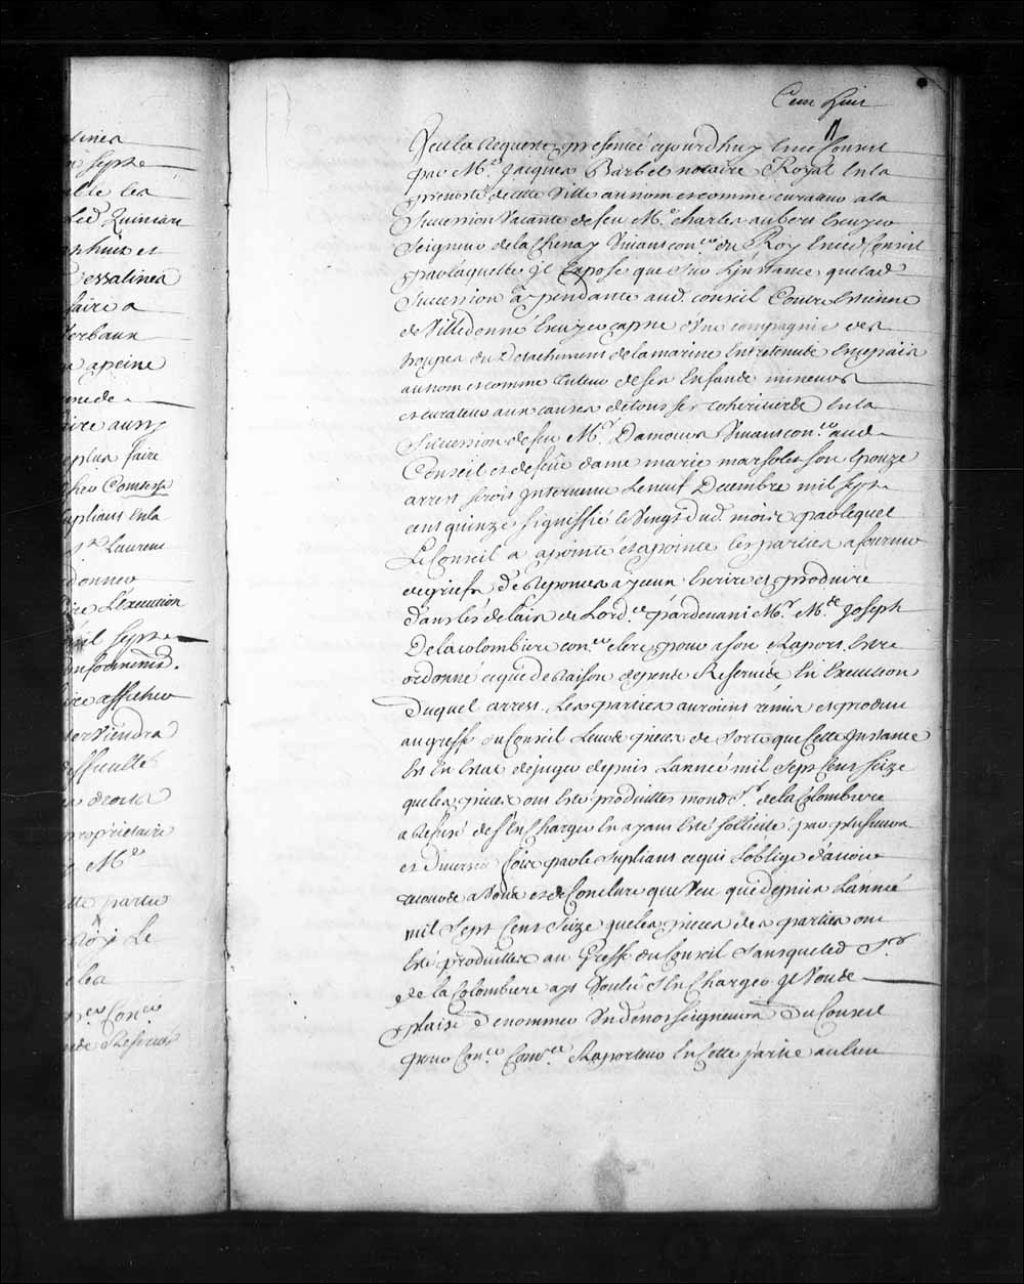 tinea
septe
ent huit et
essalinea
faire a
verbaux
a apeine
aire aussy
plus faire
upliant Enla
st Laurent
donner
L'execution
mil septe
ire afficher
viendra
difficultés
droits
propriétaire
Mre
partie
Le
Concer
Cent huit
Veu la Requeste presentée aujourd'huy En ce Conseil
par Me Jacques Barbel notaire Royal En la
prevosté de cette Ville au nom et comme curateur a la
Succession Vacante de feu Me charles aubert Ecuyer
Seigneur de la Chenay Vivant coner du Roy En ce Conseil
par laquelle jl Expose que Sur L'jnstance que lad
Succession a pendante aud. conseil Contre Estienne
de Villedonné Ecuyer capne d'une compagnie des
troupes du Detachement de la marine Entretenüe En ce païs
au nom et comme tuteur de ses Enfants mineurs
et curateur aux causes de tous ses coheritiers En la
Succession de feu Mr Damours Vivant coner aud
Conseil et de feüe dame marie marsolet son Epouze
arrest seroit jntervenu Le neuf Decembre mil sept
cent quinze signiffié le Vingt dud. mois par lequel
Le Conseil a apointé et apointe les parties a fournir
de griefs Reponses a jceux Ecrire et produire
dans les delais de L'ord.ce pardevant Mr Me Joseph
De la colombiere coner clerc pour a son Raport Estre
ordonné ce que de Raison depens Reservés En Execution
Duquel arrest Les parties auroient remis et produit
au greffe du Conseil Leurs pieces de sorte que Cette jnstance
Est En Estat de juger depuis L'année mil Sept Cent Seize
que les pieces ont Esté produittes mond Sr de la Colombiere
a Refusé de s'En Charger En ayant Esté sollicité par plusieurs
et Diverses foix par le Supliant ce qui L'oblige d'avoir
recours a Vous et de Conclure que Veu que depuis L'année
mil Sept Cent Seize que les pieces des parties ont
Esté produittes au Greffe du Conseil sans que led Sr
de la Colombiere ayt Voulu s'En Charger jl Vous
plaise de nommer Un de nosseigneurs Du Conseil
pour Coner Comre Raporteur En Cette partie au lieu